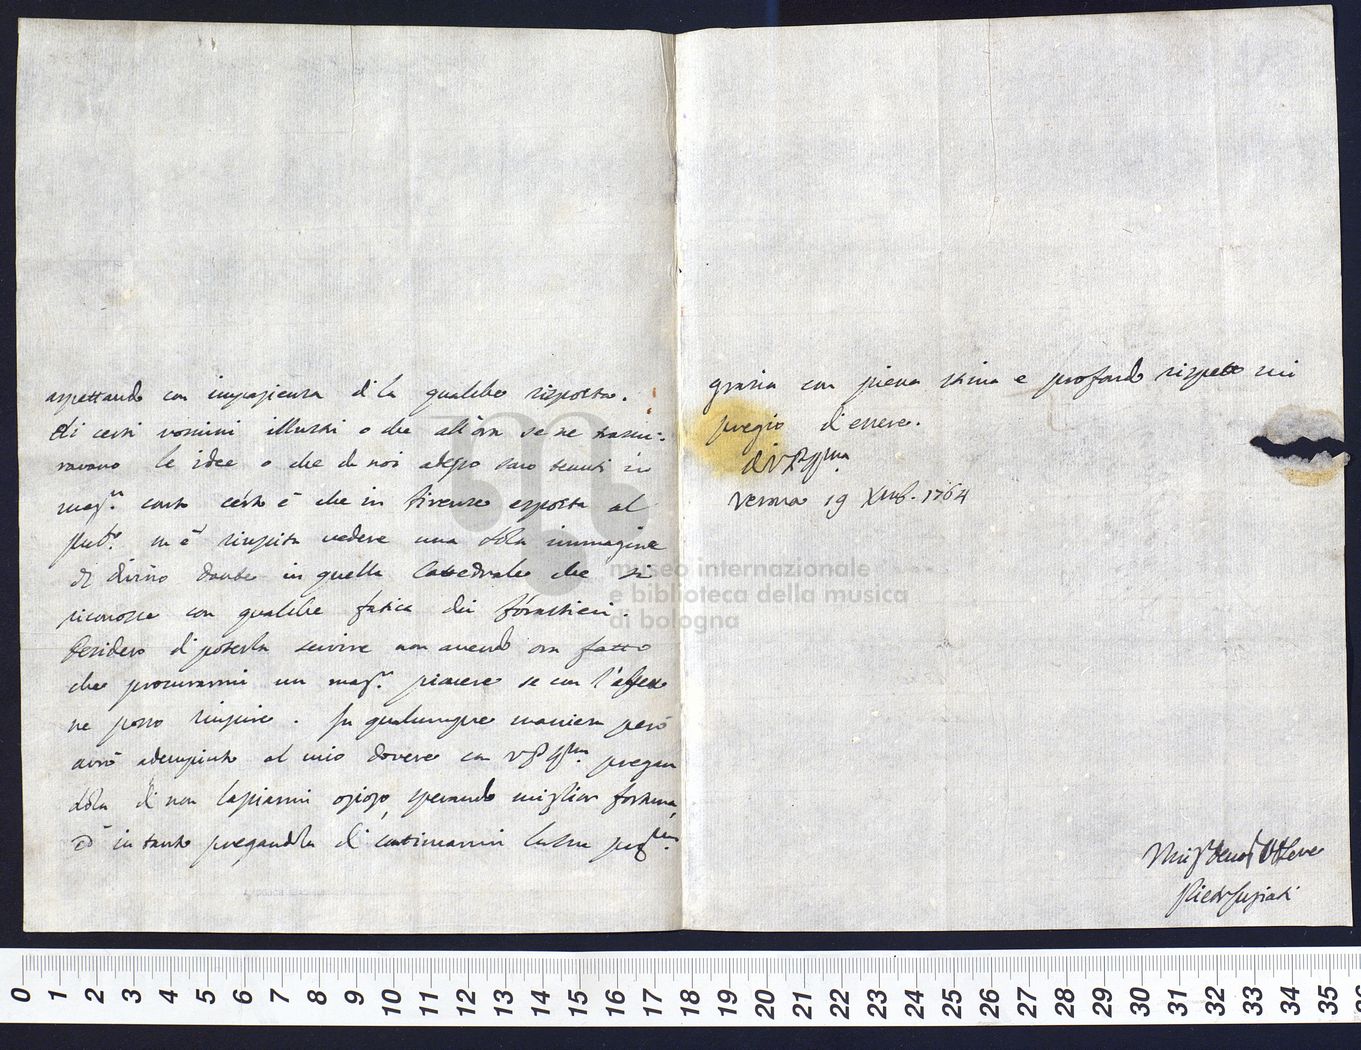 aspettando con impazienza di la qualche risposta.
di certi uomini illustri o che all'ora se ne trascu-
ravano le idee o che da noi adesso sono tenuti in
magr. conto certo è che in Firenze esposta al
Pubo. m'è riuscita vedere una sola immagine
di divino Dante in quella Cattedrale che si
riconosce con qualche fatica dai forastieri.
Desidero di poterla servire non avendo ora fatto
che procurarmi un magr. piacere se con l'
ne posso riuscire. In qualunque maniera però
avrò adempiuto al mio dovere con V P pregan
dola di non lasciarmi ozioso, sperando miglior fortuna,
ed in tanto pregandola di continuarmi la sua
grazia con piena stima e profondo rispetto mi
pregio di essere.
di V P
Verona 19 Xmb. 1764
museo internazionale
e biblioteca della musica
di bologna
Umis Devos
0 1 2 3 4 5 6 7 8 9 10 11 12 13 14 15 16 17 18 19 20 21 22 23 24 25 26 27 28 29 30 31 32 33 34 35